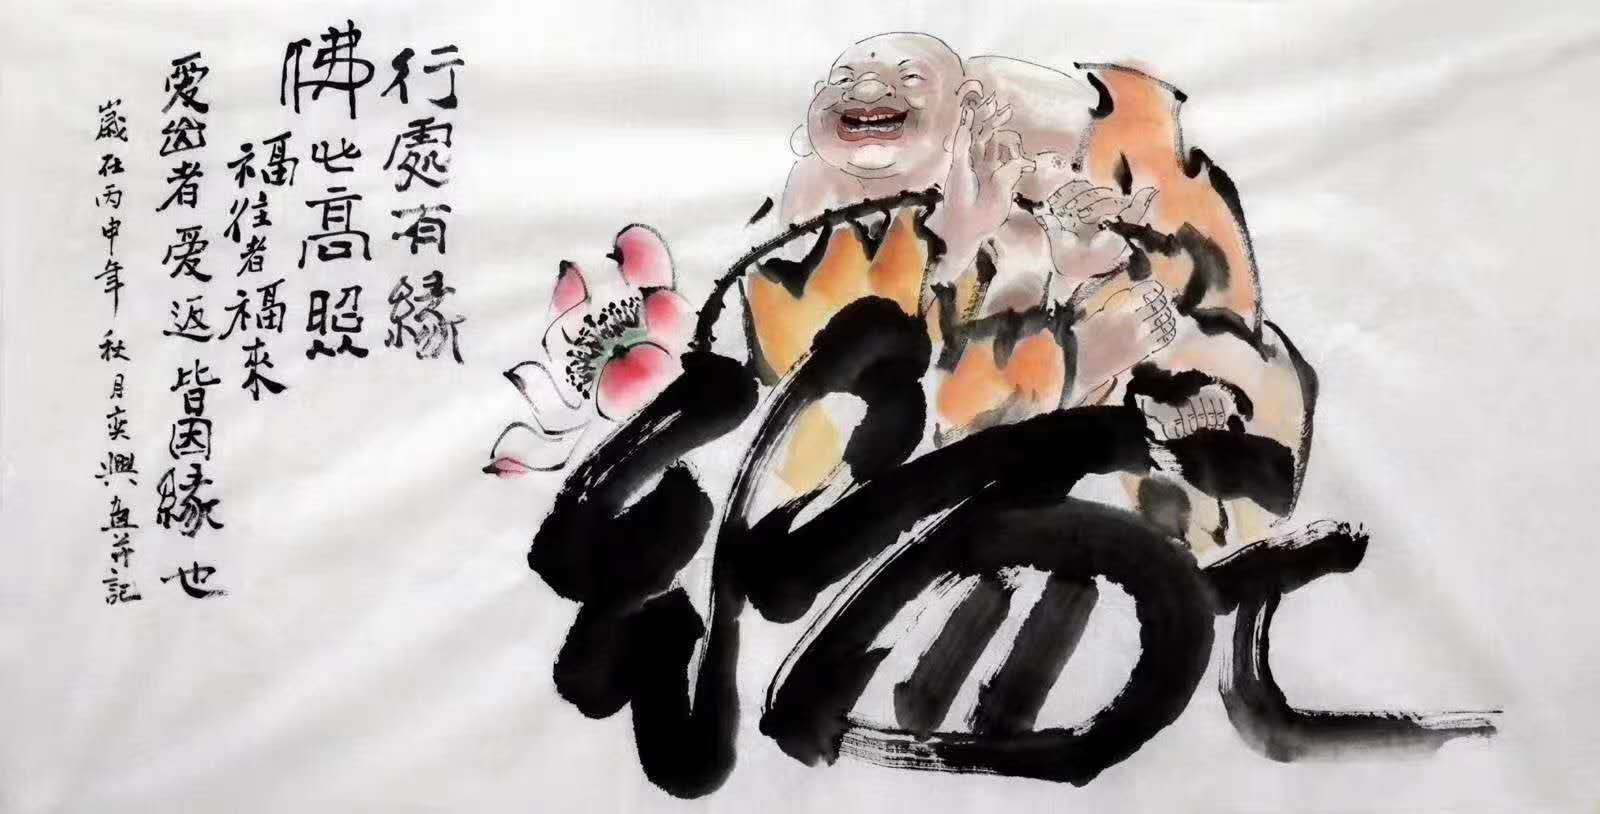 行處有緣
佛光高照
福往者福來
愛出者愛返皆因緣也
歲在丙申年秋月奕興画并記